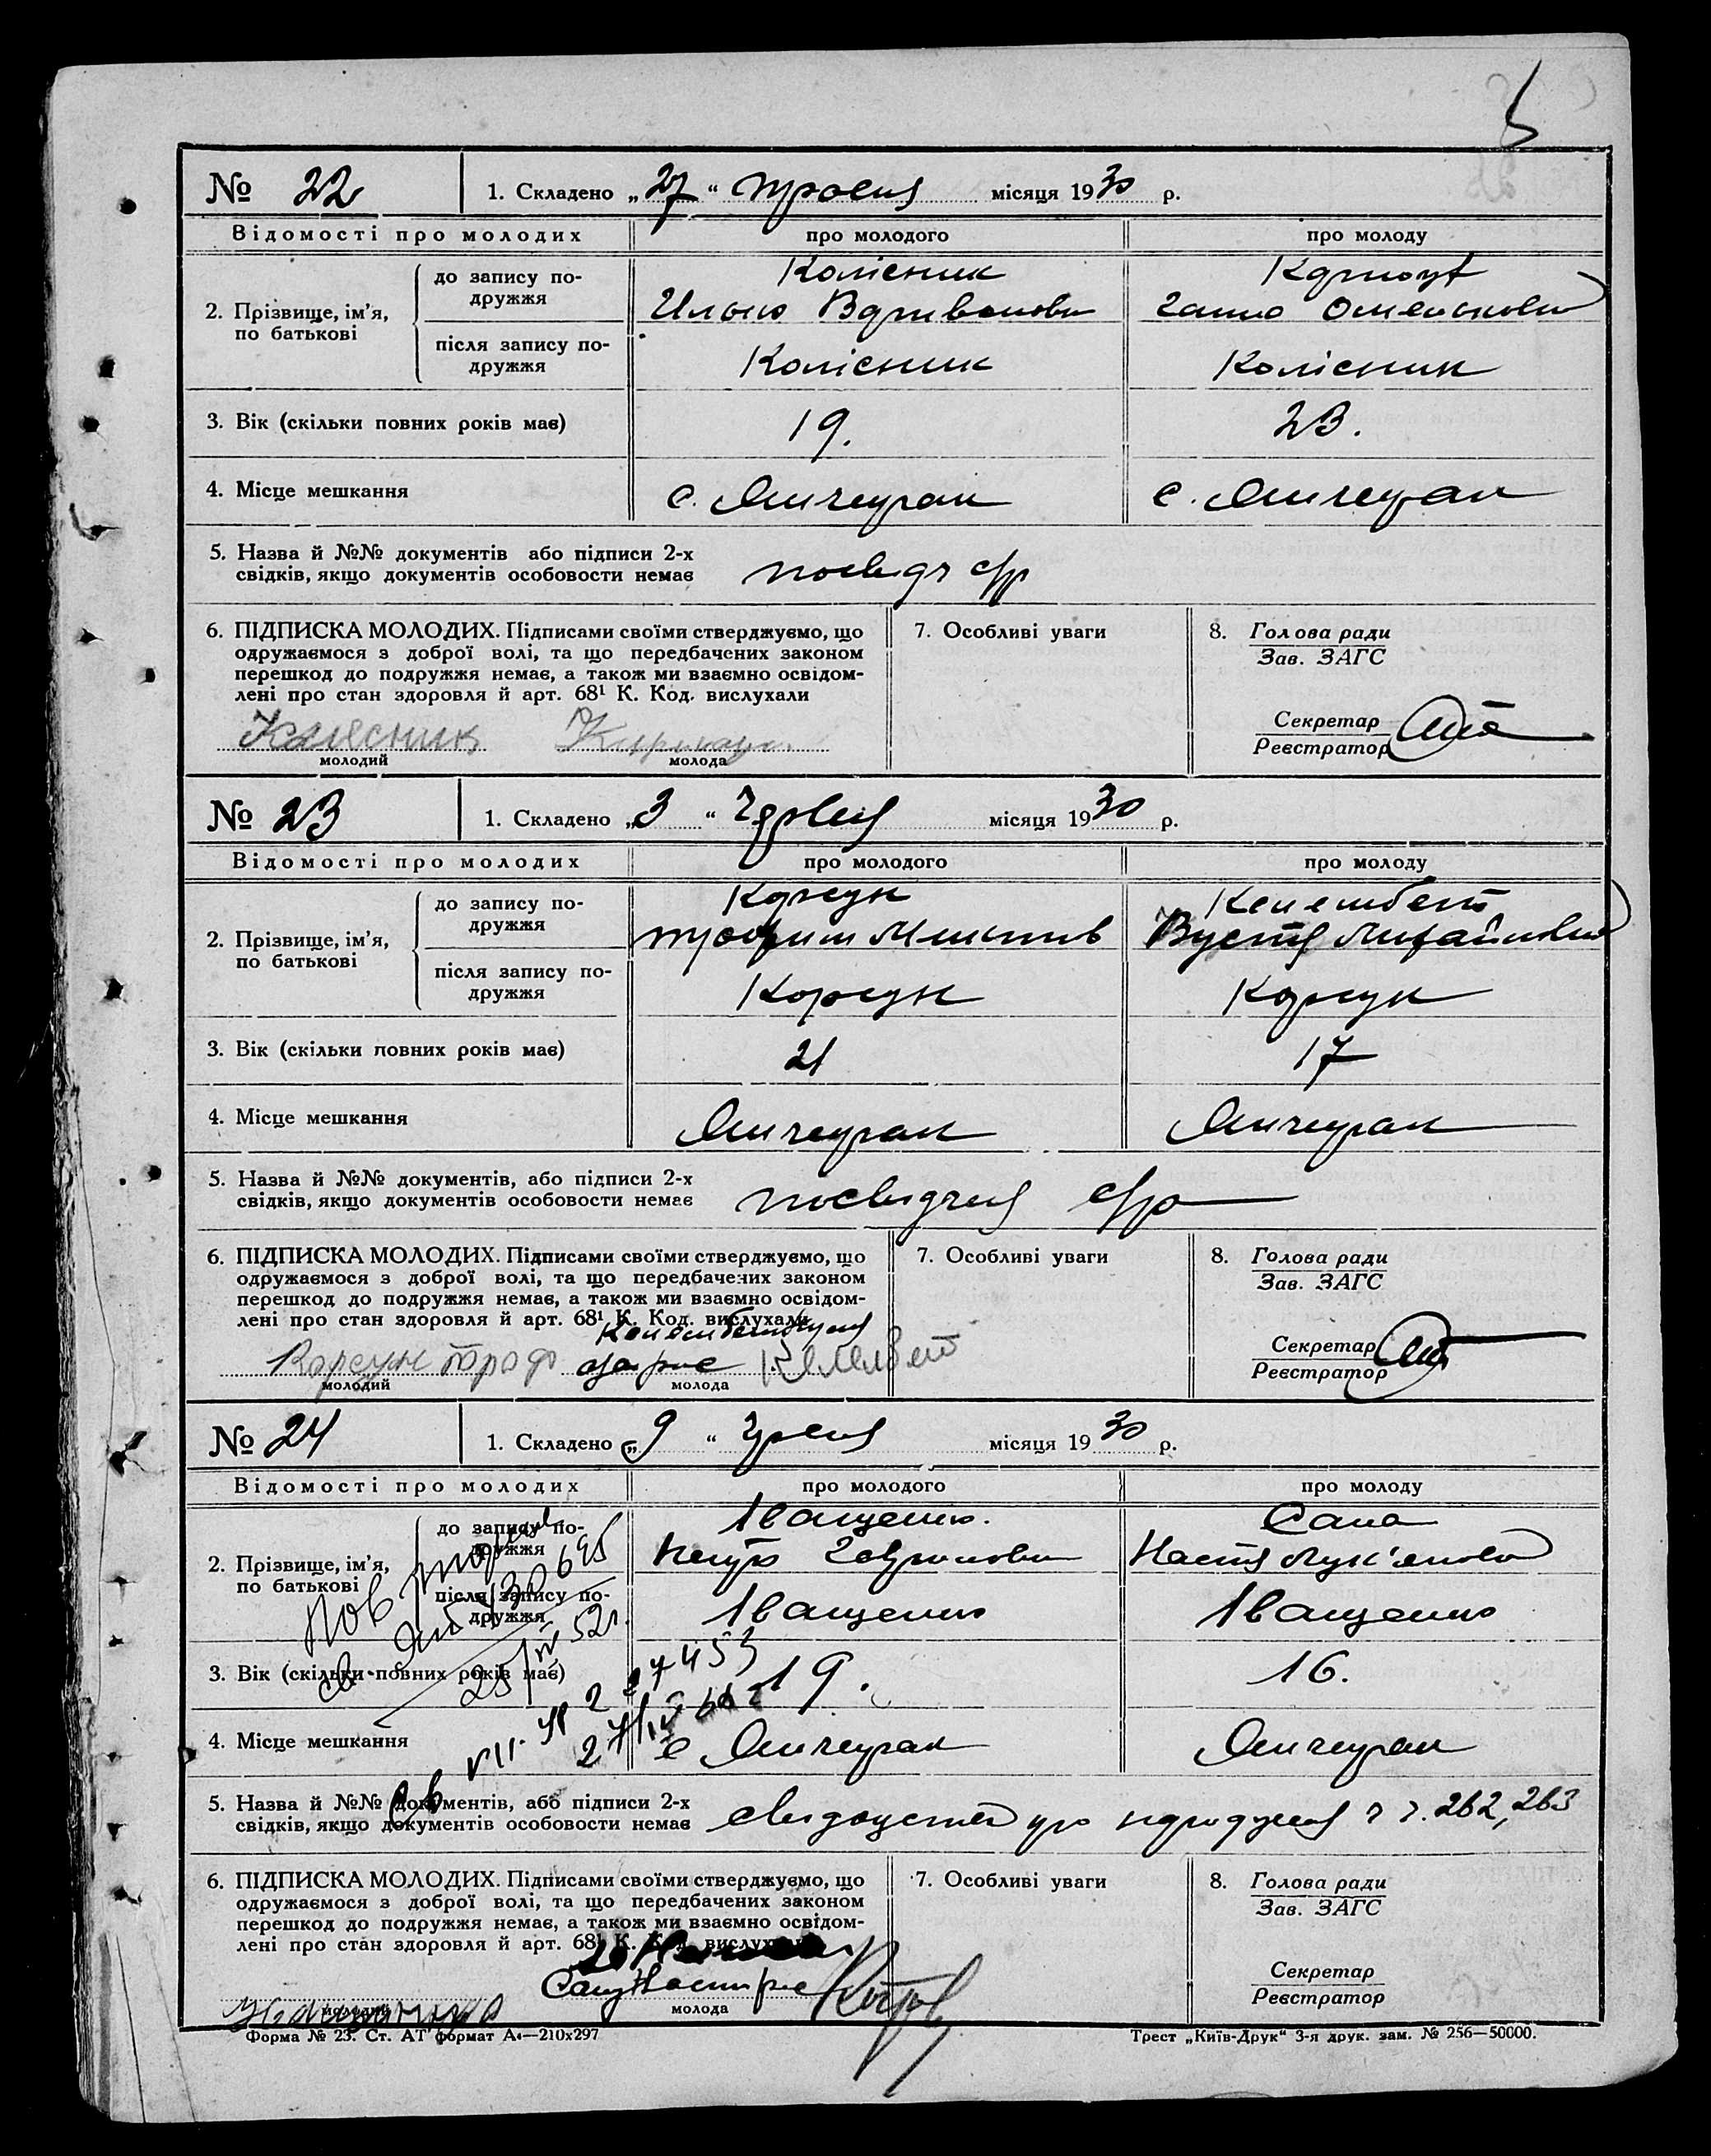 5
№ 22 1. Складено „27“ травня місяця 1930 р.
Відомості про молодих про молодого про молоду
2. Прізвище, ім’я, по батькові
до запису подружжя Колісник
Илько
Ганна Омелькова
після запису подружжя Колісник Колісник
3. Вік (скільки повних років має) 19. 23.
4. Місце мешкання с. Янчекрак с. Янчекрак
5. Назва й №№ документів або підписи 2-х
свідків, якщо документів особовости немає посвідч с/р
6. ПІДПИСКА МОЛОДИХ. Підписами своїми стверджуємо, що
одружаємося з доброї волі, та що передбачених законом
перешкод до подружжя немає, а також ми взаємно освідом-
лені про стан здоровля й арт. 68¹ К. Код. вислухали
7. Особливі уваги
8. Голова ради
Зав. ЗАГС
Секретар
Реєстратор
Колесник
молодий молода
№ 23 1. Складено „3“ Червня місяця 1930 р.
Відомості про молодих про молодого про молоду
2. Прізвище, ім’я, по батькові
до запису подружжя Корсун
Трофим
Вустя Михайловна
після запису подружжя Корсун Корсун
3. Вік (скільки повних років має) 21 17
4. Місце мешкання Янчекрак Янчекрак
5. Назва й №№ документів, або підписи 2-х
свідків, якщо документів особовости немає посвідчення с/р
6. ПІДПИСКА МОЛОДИХ. Підписами своїми стверджуємо, що
одружаємося з доброї волі, та що передбачених законом
перешкод до подружжя немає, а також ми взаємно освідом-
лені про стан здоровля й арт. 68¹ К. Код. вислухали
7. Особливі уваги
8. Голова ради
Зав. ЗАГС
Секретар
Реєстратор
Корсун Троф
молодий молода
№ 24 1. Складено „9“ Червня місяця 1930 р.
Відомості про молодих про молодого про молоду
2. Прізвище, ім’я, по батькові
до запису подружжя Іващенко. Сана
Петро Настя Лук’янова
після запису подружжя Іващенко Іващенко
Повторне
3. Вік (скільки повних років має) 19. 16.
4. Місце мешкання с Янчекрак Янчекрак
5. Назва й №№ документів, або підписи 2-х
свідків, якщо документів особовости немає про народження ч ч. 262, 263
6. ПІДПИСКА МОЛОДИХ. Підписами своїми стверджуємо, що
одружаємося з доброї волі, та що передбачених законом
перешкод до подружжя немає, а також ми взаємно освідом-
лені про стан здоровля й арт. 68¹ К. Код. вислухали
7. Особливі уваги
8. Голова ради
Зав. ЗАГС
Секретар
Реєстратор
молодий молода
Форма № 23. Ст. АТ формат А₄—210х297
Трест „Київ-Друк“ 3-я друк. зам. № 256—50000.